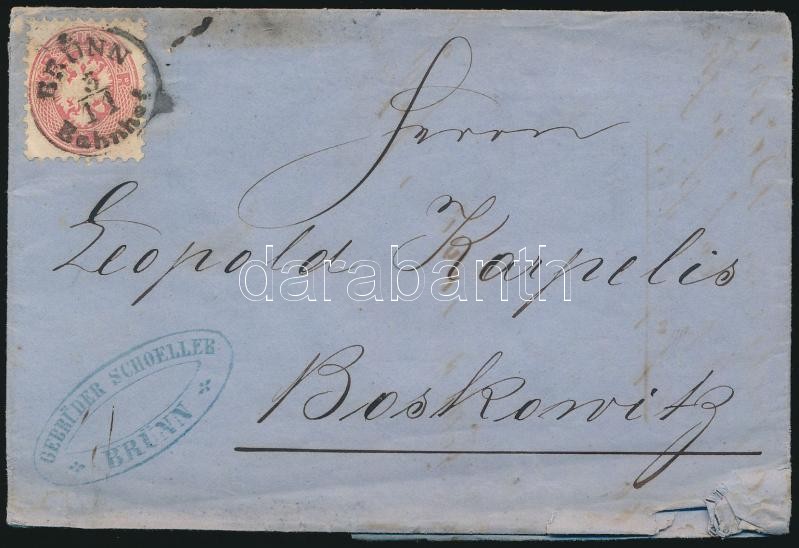 BRÜNN
3/11
Bahnhof
Herrn
Leopold Karpelis
darabanth
Boskowitz
GEBRÜDER SCHOELLER
BRÜNN